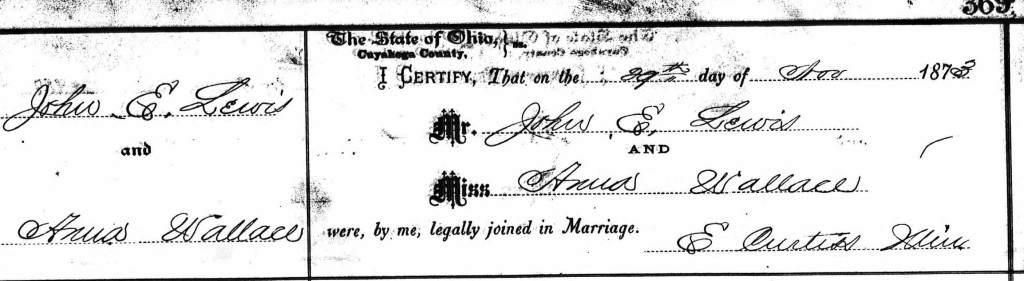 369.
John E. Lewis
and
Anna Wallace
The State of Ohio,
Cuyahoga County, } ss.
I CERTIFY, That on the 29th day of Nov 1873
Mr. John E. Lewis
AND
Miss Anna Wallace
were, by me, legally joined in Marriage.
E Curtiss